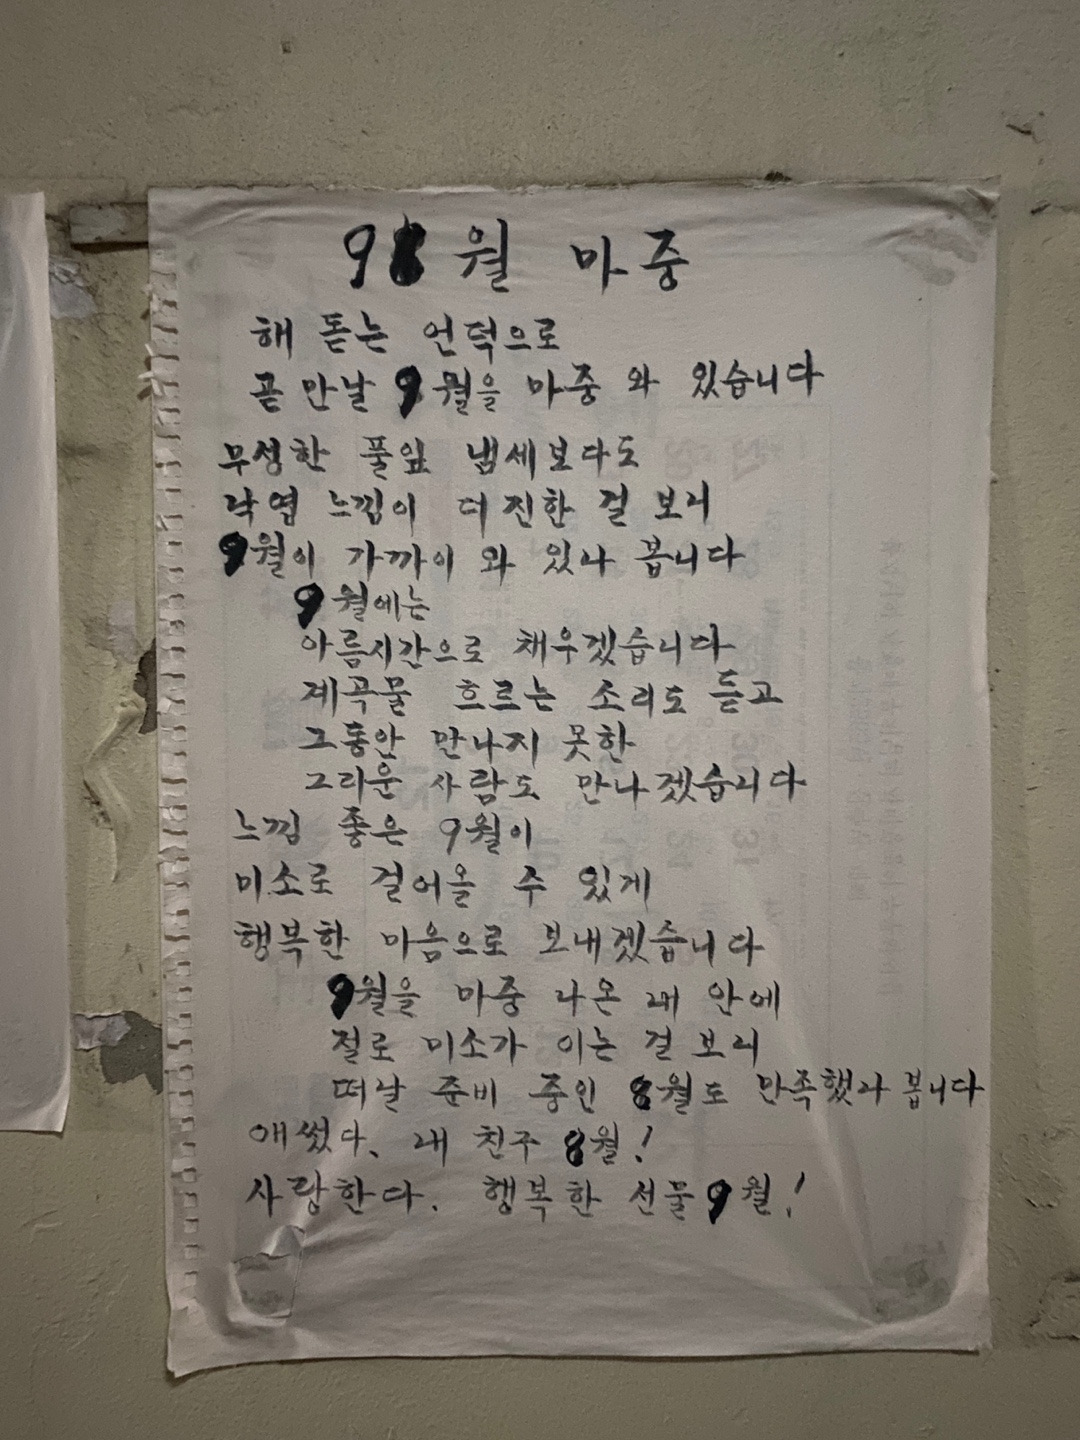 9월 마중
해 돋는 언덕으로
곧 만날 9월을 마중 와 있습니다
무성한 풀잎 냄세보다도
낙엽 느낌이 더 진한 걸 보니
9월이 가까이 와 있나 봅니다
9월에는
아름시간으로 채우겠습니다
계곡물 흐르는 소리도 듣고
그동안 만나지 못한
그리운 사람도 만나겠습니다
느낌 좋은 9월이
미소로 걸어올 수 있게
행복한 마음으로 보내겠습니다
9월을 마중 나온 내 안에
절로 미소가 이는 걸 보니
떠날 준비 중인 8월도 만족했나 봅니다
애썼다. 내 친구 8월!
사랑한다. 행복한 선물 9월!